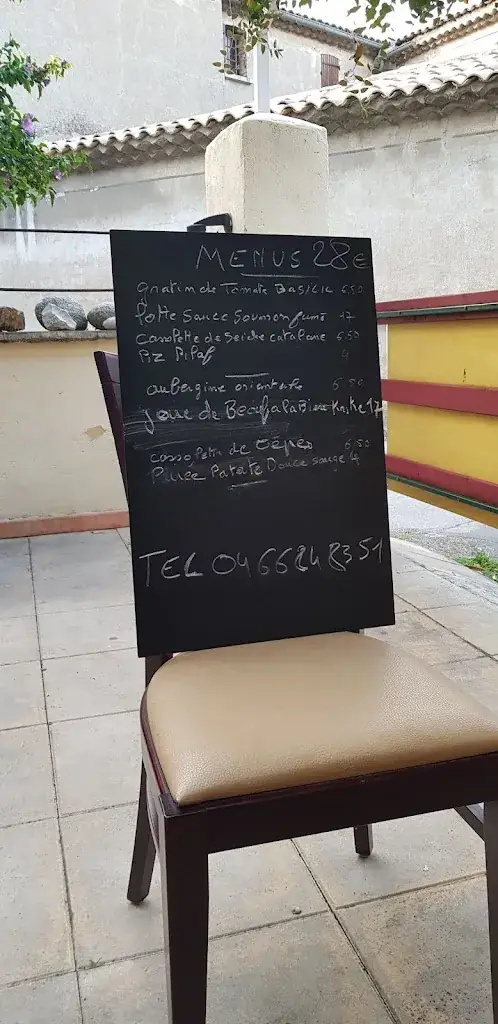 MENUS 28€
gratin de Tomate Basilic 6.50
Sauce Saumon fumé 17
Cassolette de Seiche catalane 6.50
Riz Pilaf 4
aubergine orientale 6.50
Joue de Boeuf a la Biere Krike 17
cassolette de Cèpes 6.50
Puree Patate Douce sauge 4
TEL 04 66 24 83 51